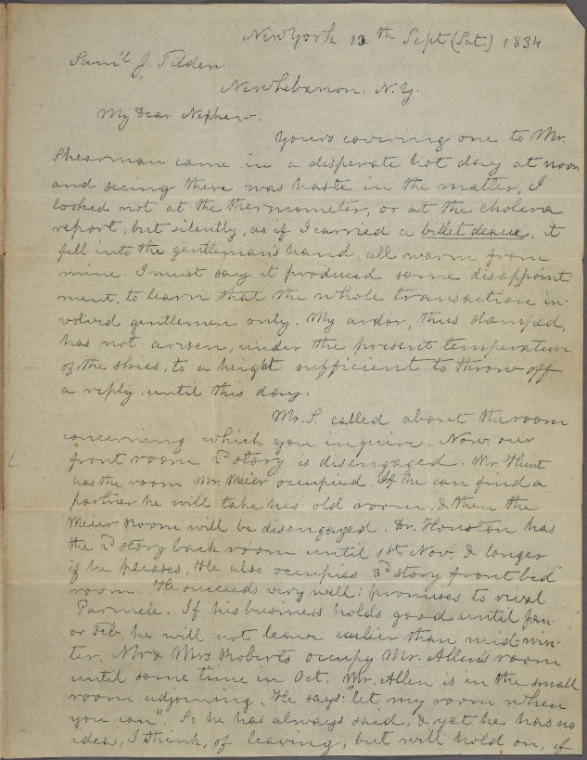 New York 13th Sept (Sat.) 1834
Saml J. Tilden.
New Lebanon. N.Y.
My Dear Nephew.
Yours covering one to Mr.
Shearman came in a desperate hot day at noon
and seeing there was haste in the matter, I
looked not at the thermometer, or at the cholera
report, but silently, as if I carried a billet deaux, it
fell into the gentleman's hand, all warm from
mine. I must say it produced some disappoint
ment, to learn that the whole transaction in-
volved gentlemen only. My ardor, thus damped,
has not arisen, under the present temperature
of the skies, to a height sufficient to throw off
a reply until this day.
Mr. S. called about the room
concerning which you inquire. Now our
front room 2d story is disengaged. Mr. Hunt
has the room Mr. Meier occupied. If he can find a
partner he will take his old room, & then the
Meier room will be disengaged. Dr. Houston has
the 2d story back room until 1st Nov. & longer
if he pleases. He also occupies 3d story front bed
room. He succeeds very well: promises to rival
Parmele. If his business holds good until Jan
or Feb. he will not leave earlier than mid win-
ter. Mr & Mrs Roberts occupy Mr. Allen's room
until some time in Oct. Mr. Allen is in the small
room adjoining. He says: "let my room when
you can". So he has always said, & yet he has no
idea, I think, of leaving, but will hold on, if